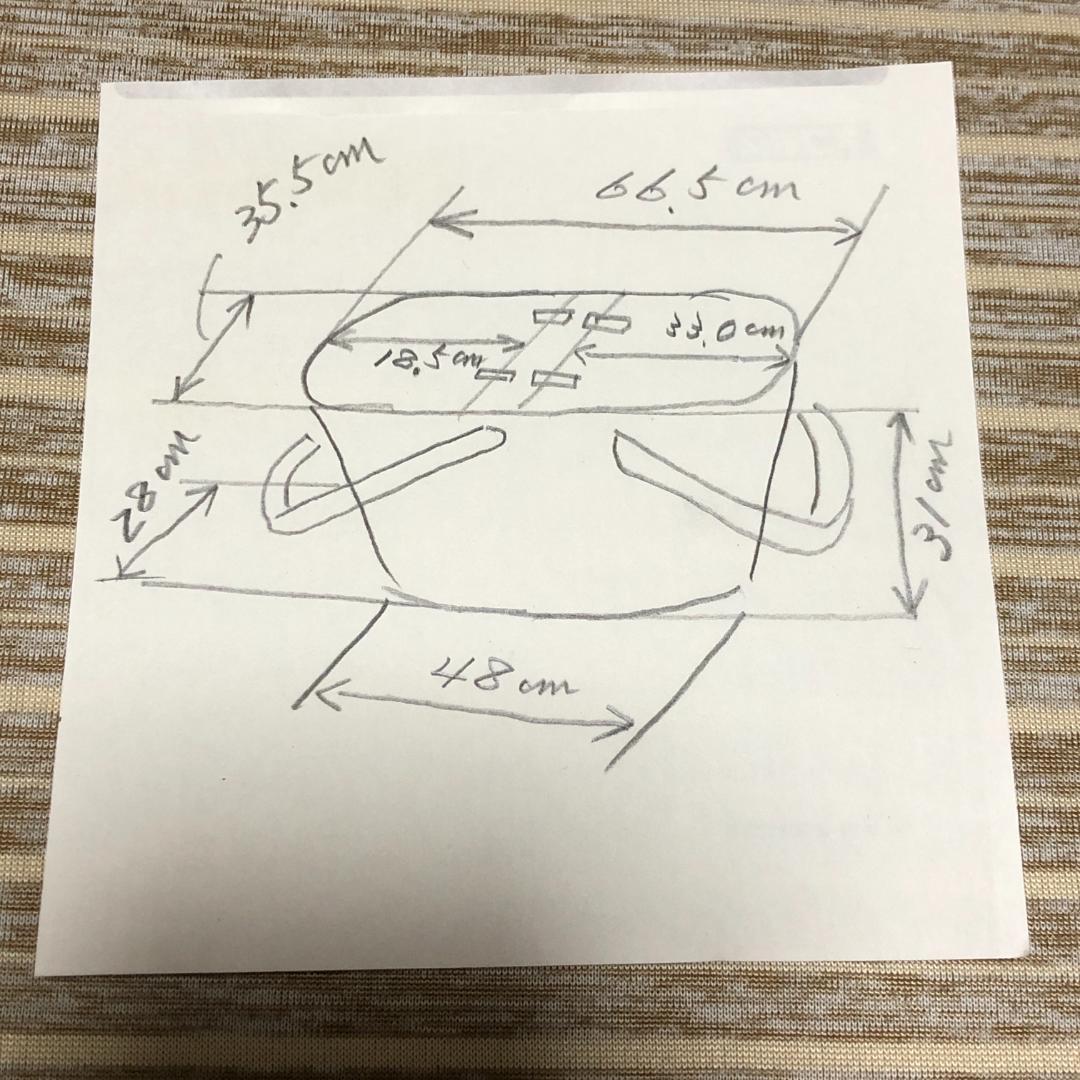 35.5cm
66.5cm
33.0cm
18.5cm
28cm
31cm
48cm